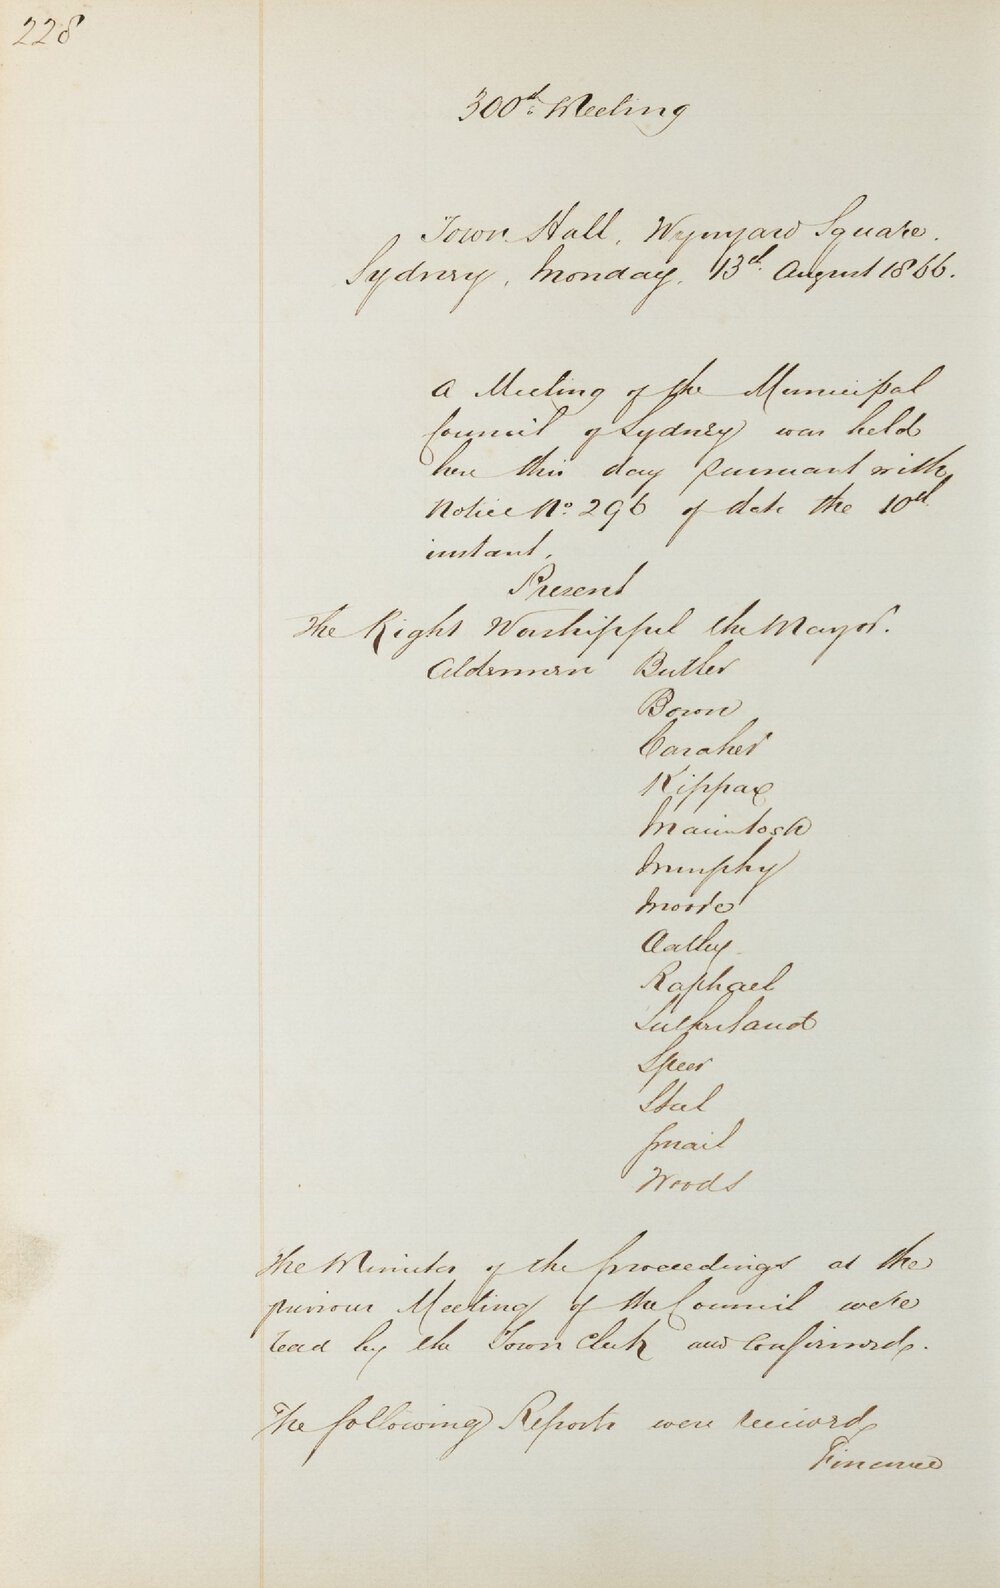 228
300th Meeting
Town Hall, Wynyard Square.
Sydney, Monday, 13th August 1866.
A Meeting of the Municipal
Council of Sydney was held
here this day pursuant with
Notice No. 296 of date the 10th
instant.
Present
The Right Worshipful the Mayor.
Aldermen Butler
Bown
Caraher
Kippax
Macintosh
Murphy
Moore
Oatley
Raphael
Sutherland
Speer
Steel
Smail
Woods
The Minutes of the proceedings at the
previous Meeting of the Council were
read by the Town Clerk and Confirmed.
The following Reports were received
Finance